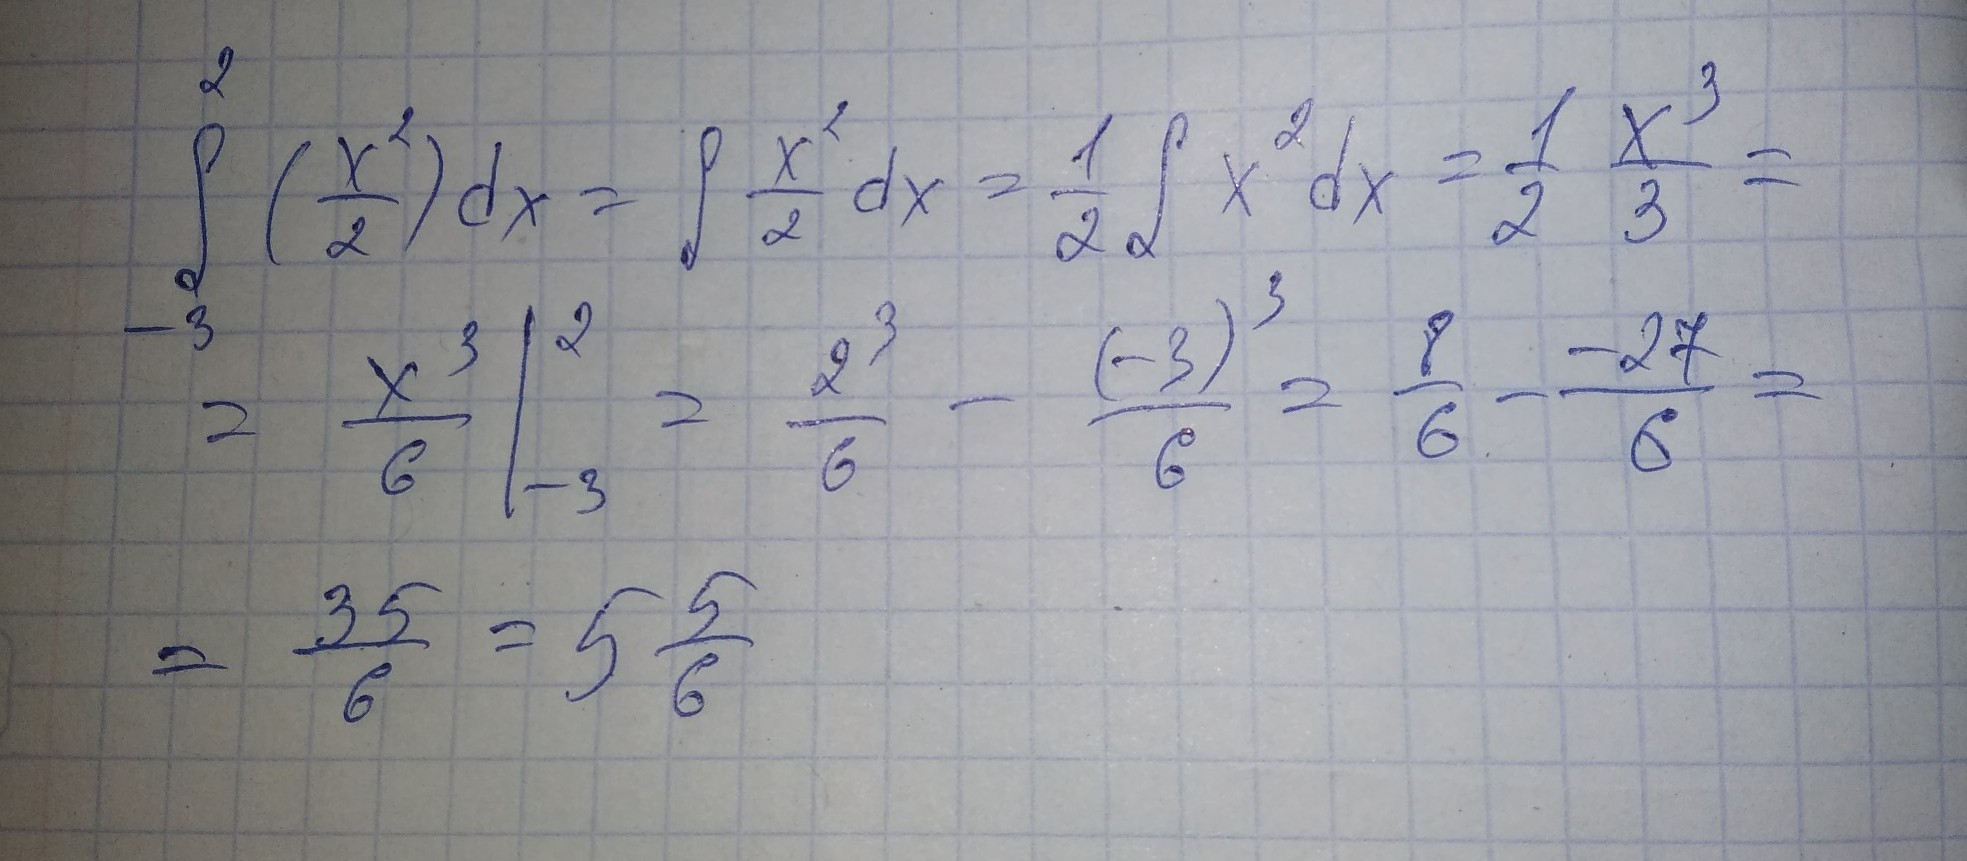 ∫_{-3}^{2} (x²/2) dx = ∫ x²/2 dx = 1/2 ∫ x² dx = 1/2 x³/3 =
= x³/6 |_{-3}^{2} = 2³/6 - (-3)³/6 = 8/6 - -27/6 =
= 35/6 = 5 5/6